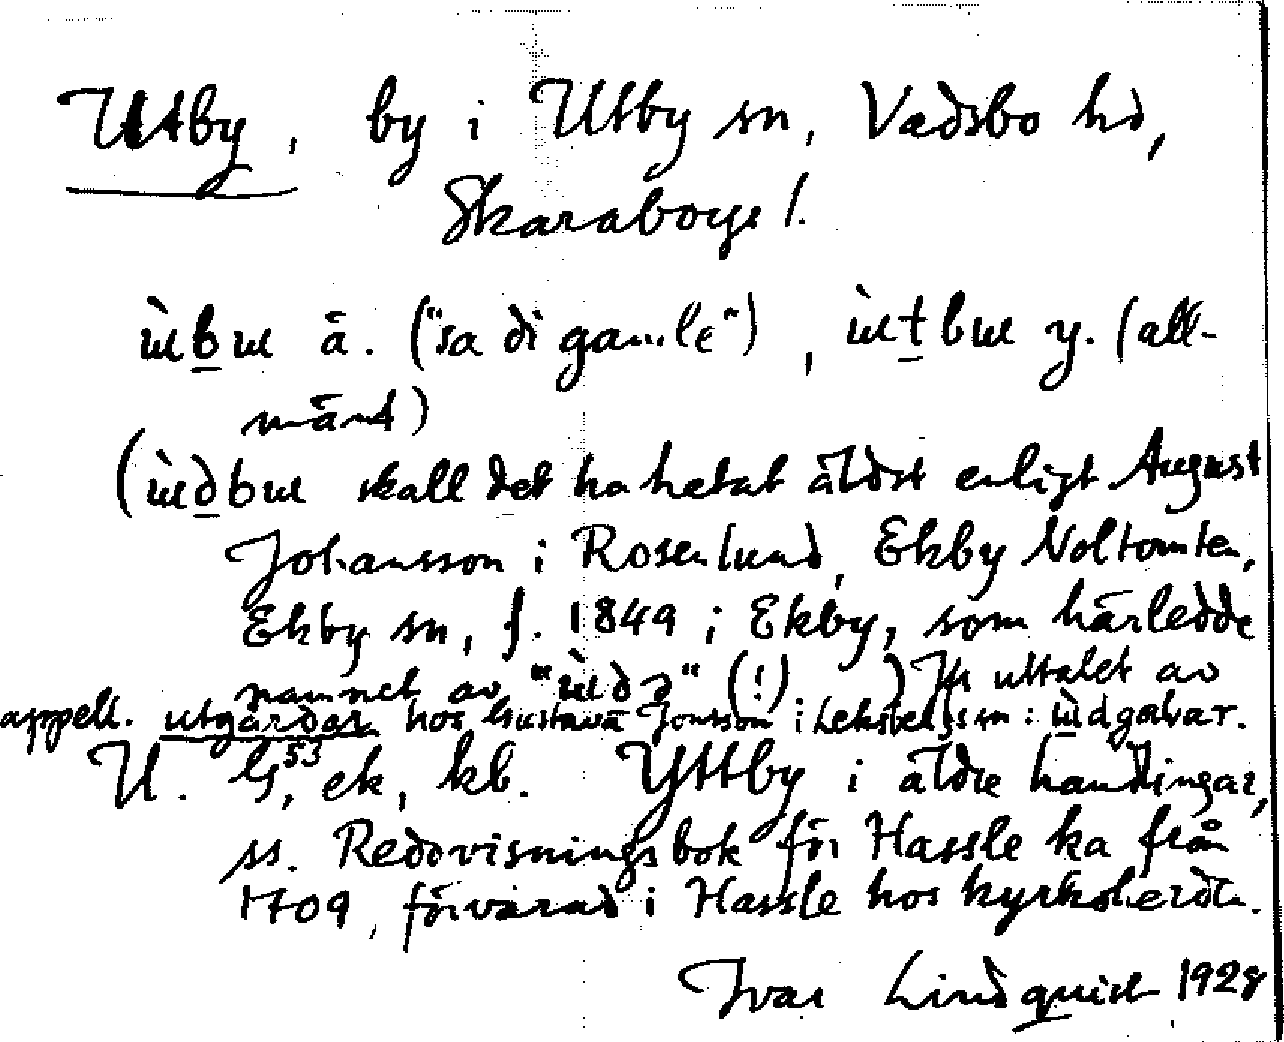 Utby, by i Utby sn, Vadsbo hd,
Skaraborgs l.
ùbɯ ä. ("sa di gamle"), ùtbɯ y. (all-
mänt)
(ùdbɯ skall det ha hetat äldst enligt August
Johansson i Rosenlund, Ekby Noltomten,
Ekby sn, f. 1849 i Ekby, som härledde
namnet av "ùdə" (!) ) Jfr uttalet av
appell. utgårdar hos Gustava Jonsson i Leksbergs sn: ùdgaɫar.
U. G, 53 ek, kb. Yttby i äldre handlingar,
ss. Redovisningsbok för Hassle ka från
1709, förvarad i Hassle hos kyrkoherdn.
Ivar Lindquist 1928